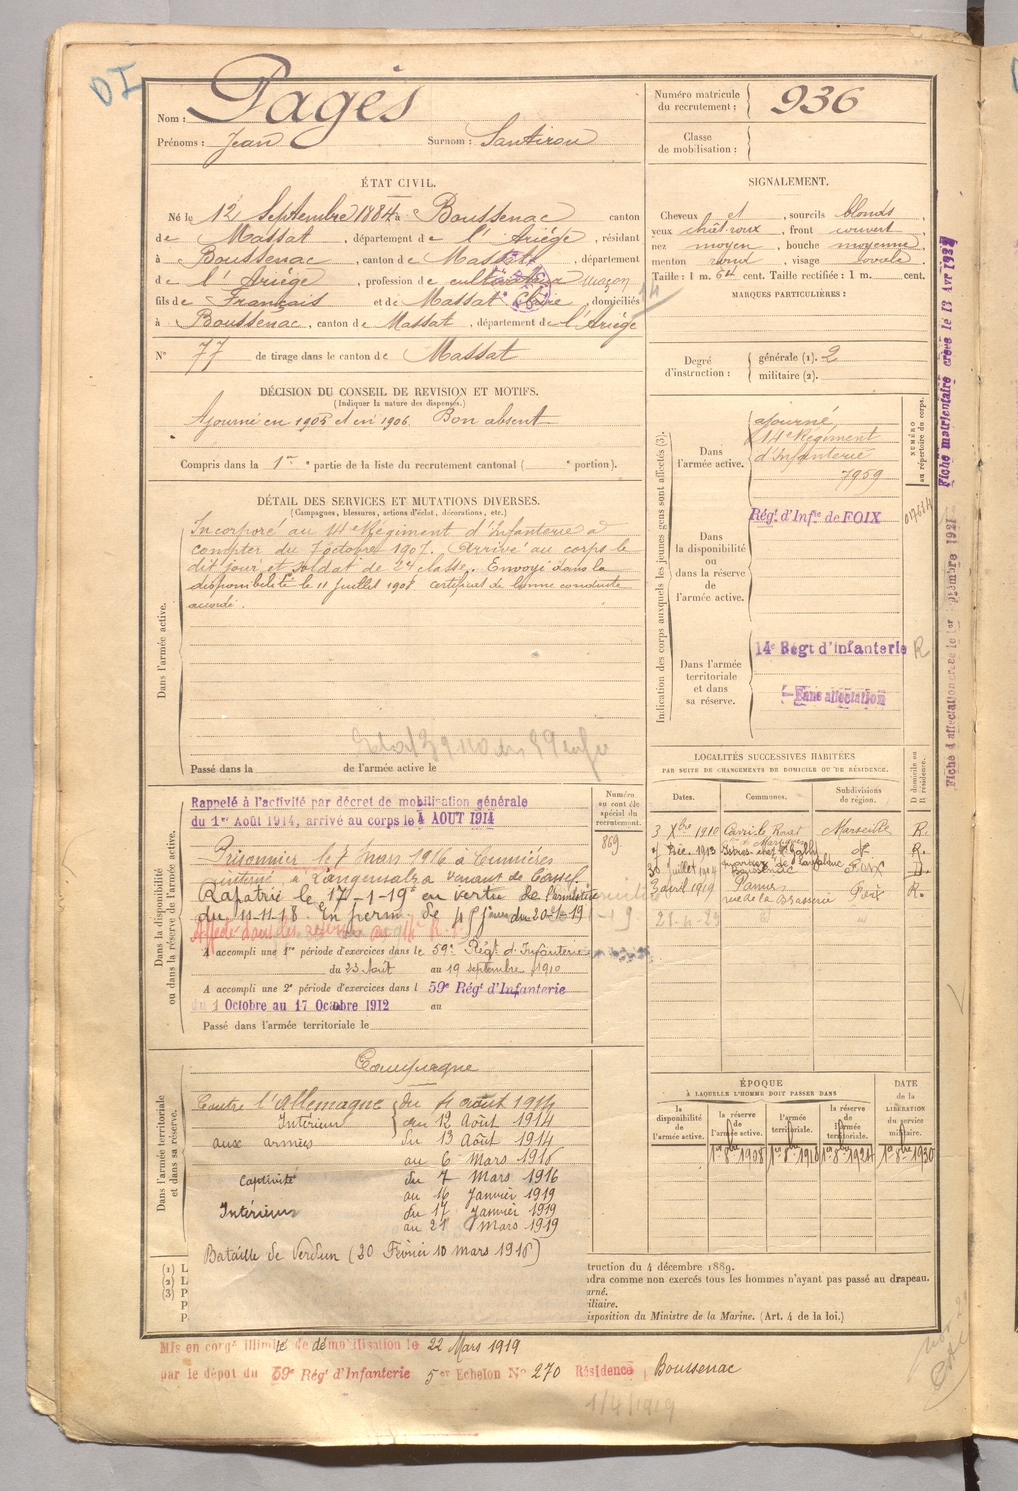 DI
Nom : Pagès
Prénoms : Jean Surnom : Santirou
Numéro matricule du recrutement : 936
Classe de mobilisation :
ÉTAT CIVIL.
Né le 12 Septembre 1884 à Boussenac canton
de Massat, département de l'Ariège, résidant
à Boussenac, canton de Massat, département
de l'Ariège, profession de cultivateur maçon
fils de Français et de Massat Claire, domiciliés
à Boussenac, canton de Massat, département de l'Ariège
N° 77 de tirage dans le canton de Massat
SIGNALEMENT.
Cheveux et , sourcils blonds,
yeux chât. roux, front couvert
nez moyen, bouche moyenne,
menton rond, visage ovale
Taille : 1 m. 64 cent. Taille rectifiée : 1 m. cent.
MARQUES PARTICULIÈRES :
Degré d'instruction : générale (1). 2
militaire (2).
DÉCISION DU CONSEIL DE REVISION ET MOTIFS.
(Indiquer la nature des dispenses.)
Ajourné en 1905 et en 1906. Bon absent
Compris dans la 1re partie de la liste du recrutement cantonal ( e portion).
DÉTAIL DES SERVICES ET MUTATIONS DIVERSES.
(Campagnes, blessures, actions d'éclat, décorations, etc.)
Dans l'armée active.
Incorporé au 14e Régiment d'Infanterie à
compter du 7 octobre 1907. Arrivé au corps le
dit jour et soldat de 2e classe. Envoyé dans la
disponibilité le 11 Juillet 1908 certificat de bonne conduite
accordé.
Passé dans la de l'armée active le
Indication des corps auxquels les jeunes gens sont affectés (3).
NUMÉRO au répertoire du corps.
Dans l'armée active.
ajourné,
14e Régiment
d'Infanterie
7959
Régt d'Infie de FOIX
Dans la disponibilité ou dans la réserve de l'armée active.
Dans l'armée territoriale et dans sa réserve.
14e Régt d'Infanterie R
Sans affectation
Fiche matriculaire créée le 13 Avr 1932
Fiche d'affectation créée le 1er septembre 1921
Dans la disponibilité ou dans la réserve de l'armée active.
Numéro au contrôle spécial du recrutement.
869
Rappelé à l'activité par décret de mobilisation générale
du 1er Août 1914, arrivé au corps le 4 AOUT 1914
Prisonnier le 7 mars 1916 à Cumières
interné à Langensalza venant de Cassel.
Rapatrié le 17-1-19 en vertu de l'armistice
du 11-11-18. En perm. de 45 jours du 20-1-19
A accompli une 1re période d'exercices dans le 59e Régt d'Infanterie
du 23 Août au 19 septembre 1910
A accompli une 2e période d'exercices dans l 59e Régt d'Infanterie
du 1 Octobre au 17 Octobre 1912 au
Passé dans l'armée territoriale le
LOCALITÉS SUCCESSIVES HABITÉES
PAR SUITE DE CHANGEMENTS DE DOMICILE OU DE RÉSIDENCE.
Dates. Communes. Subdivisions de région. D domicile ou R résidence.
3 Xbre 1910 Marseille R.
Déc. 1913 Istres R.
juillet 1914 Boussenac Foix D.
3 avril 1919 Pamiers Foix R.
rue de la Brasserie
Dans l'armée territoriale et dans sa réserve.
Campagne
Contre l'Allemagne du 4 août 1914
Intérieur au 12 Août 1914
aux armées du 13 Août 1914
au 6 Mars 1916
Captivité du 7 Mars 1916
au 16 Janvier 1919
Intérieur du 17 Janvier 1919
au 21 Mars 1919
Bataille de Verdun (20 Février 10 mars 1916)
ÉPOQUE
À LAQUELLE L'HOMME DOIT PASSER DANS
la disponibilité de l'armée active. la réserve de l'armée active. l'armée territoriale. la réserve de l'armée territoriale.
DATE de la LIBÉRATION du service militaire.
1er 8bre 1908 1er 8bre 1918 1er 8bre 1924 1er 8bre 1930
(1) L
(2) L
(3) P
P
P
truction du 4 décembre 1889.
dra comme non exercés tous les hommes n'ayant pas passé au drapeau.
arné.
iliaire.
isposition du Ministre de la Marine. (Art. 4 de la loi.)
Mis en congé illimité de démobilisation le 22 Mars 1919
par le dépôt du 59e Régt d'Infanterie 5er Echelon N° 270 Résidence Boussenac
1/4/1919